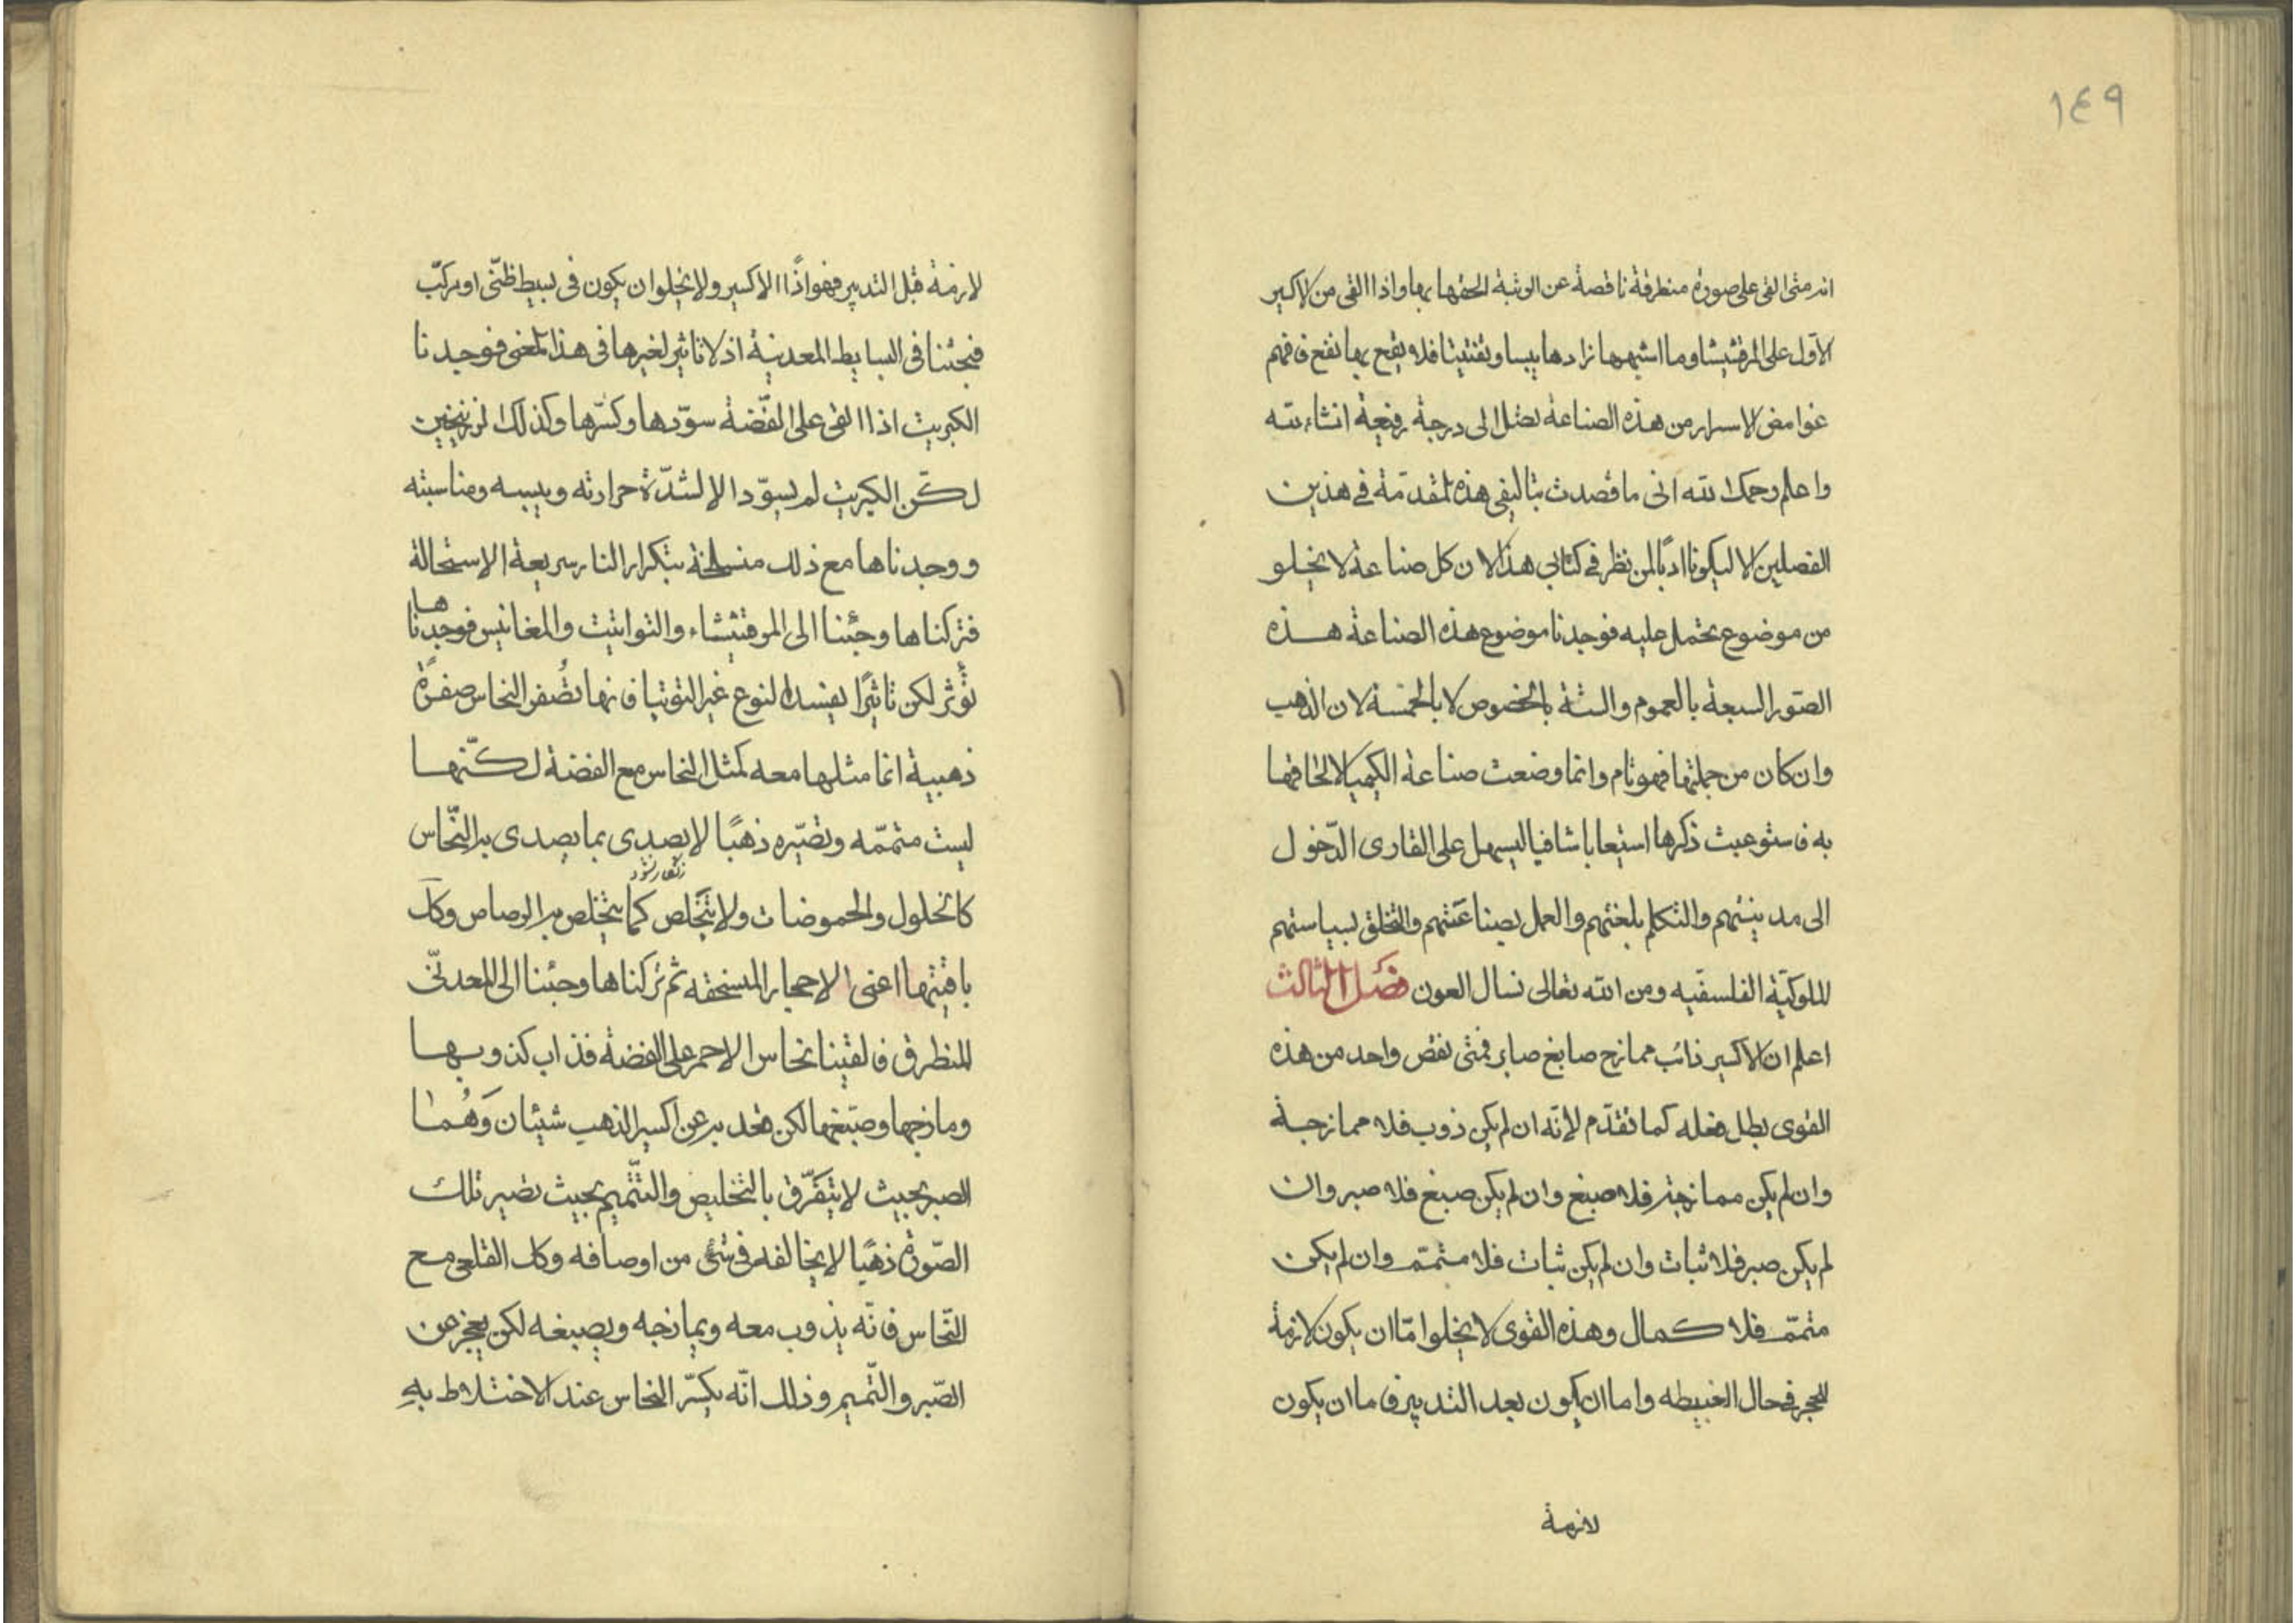 ١٤٩
انه متى القى على صورة منطرقة ناقصة عن الرتبة الحقها بها واذا القى من الاكسير
الاول على المرقشيشا وما اشبهها زادها يبسا وتفتيتا فلا يقع بها نفع فافهم
غوامض الاسرار من هذه الصناعة تصل الى درجة رفيعة انشاء الله
واعلم رحمك الله انى ما قصدت بتاليفى هذه المقدّمة فى هذين
الفصلين الا ليكونا ادبًا لمن نظر فى كتابى هذا لان كل صناعة لا يخلو
من موضوع يحتمل عليه فوجدنا موضوع هذه الصناعة هذه
الصّور السبعة بالعموم والستة بالخصوص لا بالخمسة لان الذهب
وان كان من جملتها فهو تام وانما وضعت صناعة الكيميا لالحاقها
به فاستوعبت ذكرها استيعابا شافيا ليسهل على القارى الدّخول
الى مدينتهم والتكلم بلغتهم والعمل بصناعتهم والتخلق بسياستهم
الملوكيّة الفلسفيّه ومن الله تعالى نسال العون فصل الثالث
اعلم ان الاكسير ذائب ممازج صابغ صابر فمتى نقص واحد من هذه
القوى بطل فعله كما تقدّم لانّه ان لم يكن ذوب فلا ممازجة
وان لم يكن ممازجة فلا صبغ وان لم يكن صبغ فلا صبر وان
لم يكن صبر فلا ثبات وان لم يكن ثبات فلا متمّم وان لم يكن
متمّم فلا كمال وهذه القوى لا يخلوا امّا ان يكون لازمة
للحجر فى حال الغبيطه واما ان يكون بعد التدبير فاما ان يكون
لازمة
لازمة قبل التدبير فهو اذًا الاكسير ولا يخلوا ان يكون فى بسيط ظنّى او مركّب
فبحثنا فى البسايط المعدنية اذ لا تاثير لغيرها فى هذا المعنى فوجدنا
الكبريت اذا القى على الفضّة سوّدها وكسّرها وكذلك الزرنيخين
لكن الكبريت لم يسوّد الا لشدّة حرارته ويبسه ومناسبته
ووجدناها مع ذلك منسلخة بتكرار النار سريعة الاستحالة
فتركناها وجئنا الى المرقشيشاء والتواتيت والمغانيس فوجدناها
تؤثر لكن تاثيرًا يفسد النوع غير التوتيا فانها تصفر النحاس صفرةً
ذهبية انما مثلها معه كمثل النحاس مع الفضة لكنّها
ليست متممّه وتصّيره ذهبًا لا يصدى بما يصدى به النّحاس
زنكار نشود
كالخلول والحموضات ولا يتخلص كما يتخلص به الرصاص وكل
باقيتها اعنى الاحجار المنسحقه ثم تركناها وجئنا الى المعدنّى
المنطرق فالقينا نحاس الاحمر على الفضة فذاب كذوبها
ومازجها وصبّغها لكن قعد به عن اكسير الذهب شيئان وهُما
الصبر بحيث لا يتفرّق بالتخليص والتّتميم بحيث تصير تلك
الصّورة ذهبًا لا يخالفه فى شىء من اوصافه وكل القلعى مع
النّحاس فانّه يذوب معه ويمازجه ويصبغه لكن يعجز عن
الصّبر والتّميم وذلك انّه يكسّر النحاس عند الاختلاط به